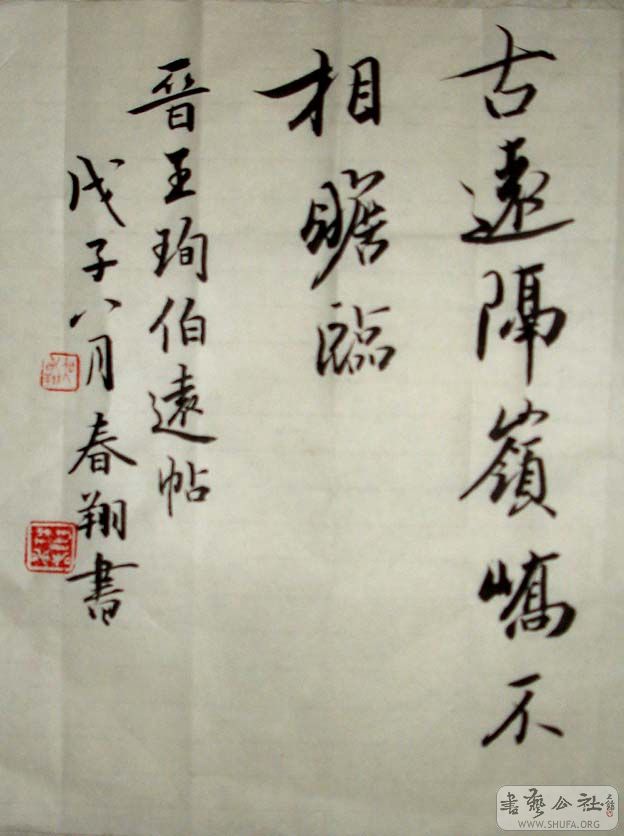 古遠隔嶺嶠不
相瞻臨
晉王珣伯遠帖
戊子八月春翔書
書藝公社
WWW.SHUFA.ORG